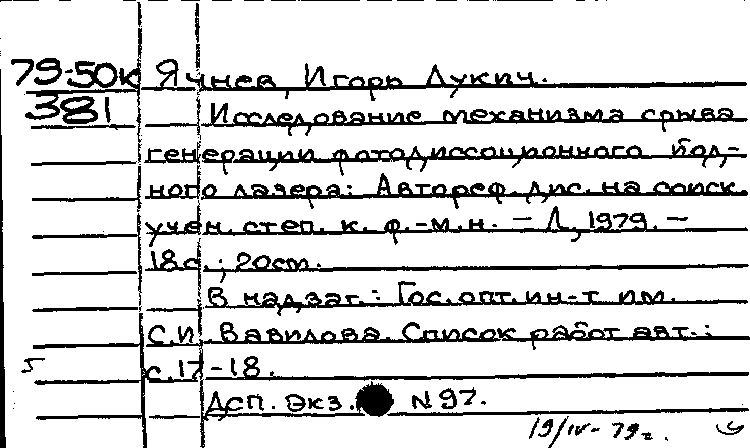 79-50к Ячнев, Игорь Лукич.
381 Исследование механизма срыва
генерации фотодиссоционного йод-
ного лазера: Автореф. дис. на соиск.
учен. степ. к. ф.-м.н. – Л, 1979. –
18с.; 20см.
В надзаг.: Гос. опт. ин-т им.
С.И. Вавилова. Список работ авт.:
с.17-18.
ДСП. Экз. N 97.
19/IV-79г.